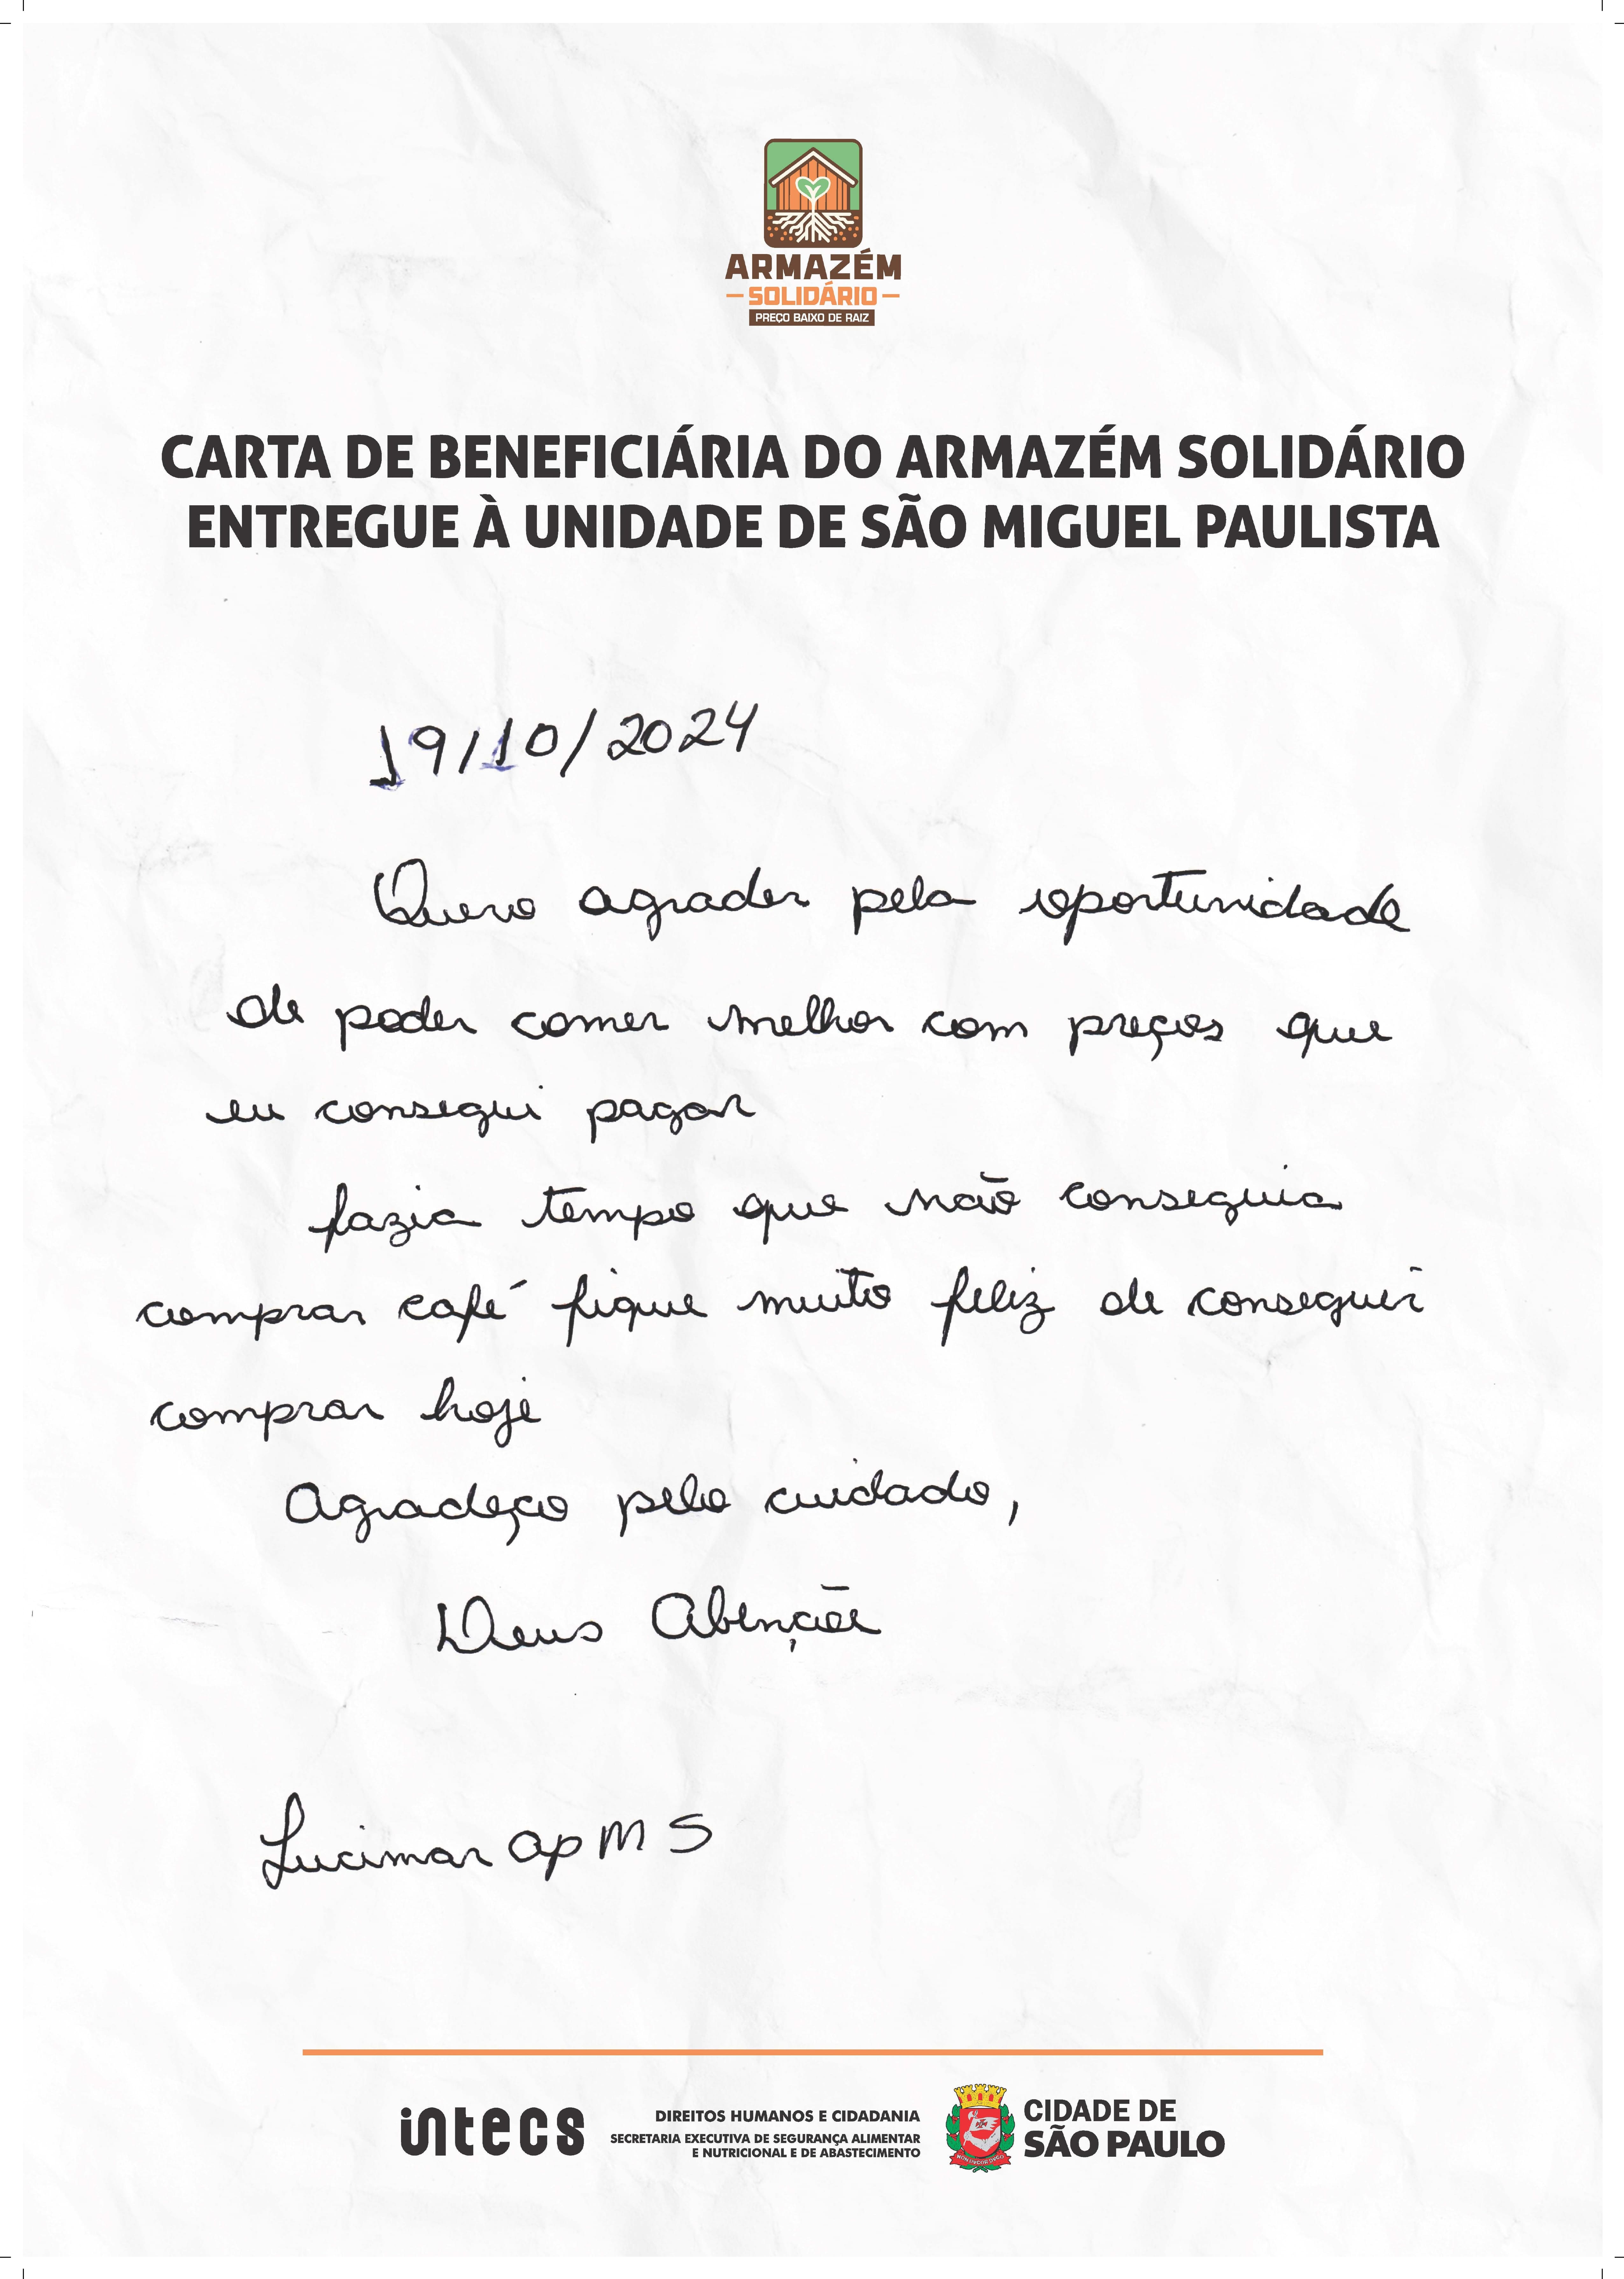 ARMAZÉM
SOLIDÁRIO
PREÇO BAIXO DE RAIZ
CARTA DE BENEFICIÁRIA DO ARMAZÉM SOLIDÁRIO
ENTREGUE À UNIDADE DE SÃO MIGUEL PAULISTA
19/10/2024
Quero agrader pela oportunidade
de poder comer melhor com preços que
eu consegui pagar
fazia tempo que não conseguia
comprar café fique muito feliz de conseguir
comprar hoje
Agradeço pelo cuidado,
Deus Abençõe
Lucimar ap M S
intecs
DIREITOS HUMANOS E CIDADANIA
SECRETARIA EXECUTIVA DE SEGURANÇA ALIMENTAR
E NUTRICIONAL E DE ABASTECIMENTO
CIDADE DE
SÃO PAULO